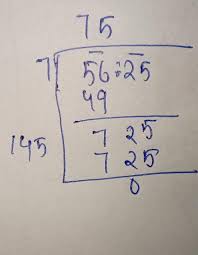 75
7 56÷25
49
145 7 25
7 25
0